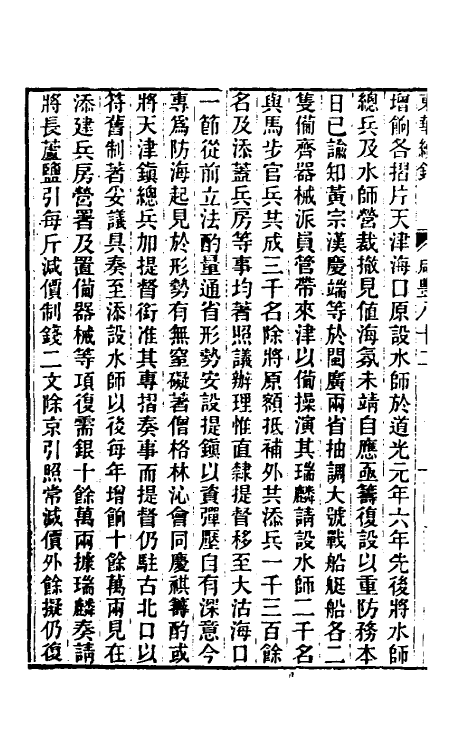 東華續錄 咸豐八十二
增餉各摺片天津海口原設水師於道光元年六年先後將水師
總兵及水師營裁撤見値海氛未靖自應亟籌復設以重防務本
日已諭知黃宗漢慶端等於閩廣兩省抽調大號戰船艇船各二
隻備齊器械派員管帶來津以備操演其瑞麟請設水師二千名
與馬步官兵共成三千名除將原額抵補外共添兵一千三百餘
名及添蓋兵房等事均著照議辦理惟直隸提督移至大沽海口
一節從前立法酌量通省形勢安設提鎭以資彈壓自有深意今
專爲防海起見於形勢有無窒礙著僧格林沁會同慶祺籌酌或
將天津鎭總兵加提督銜准其專摺奏事而提督仍駐古北口以
符舊制著妥議具奏至添設水師以後每年增餉十餘萬兩見在
添建兵房營署及置備器械等項復需銀十餘萬兩據瑞麟奏請
將長蘆鹽引每斤減價制錢二文除京引照常減價外餘擬仍復